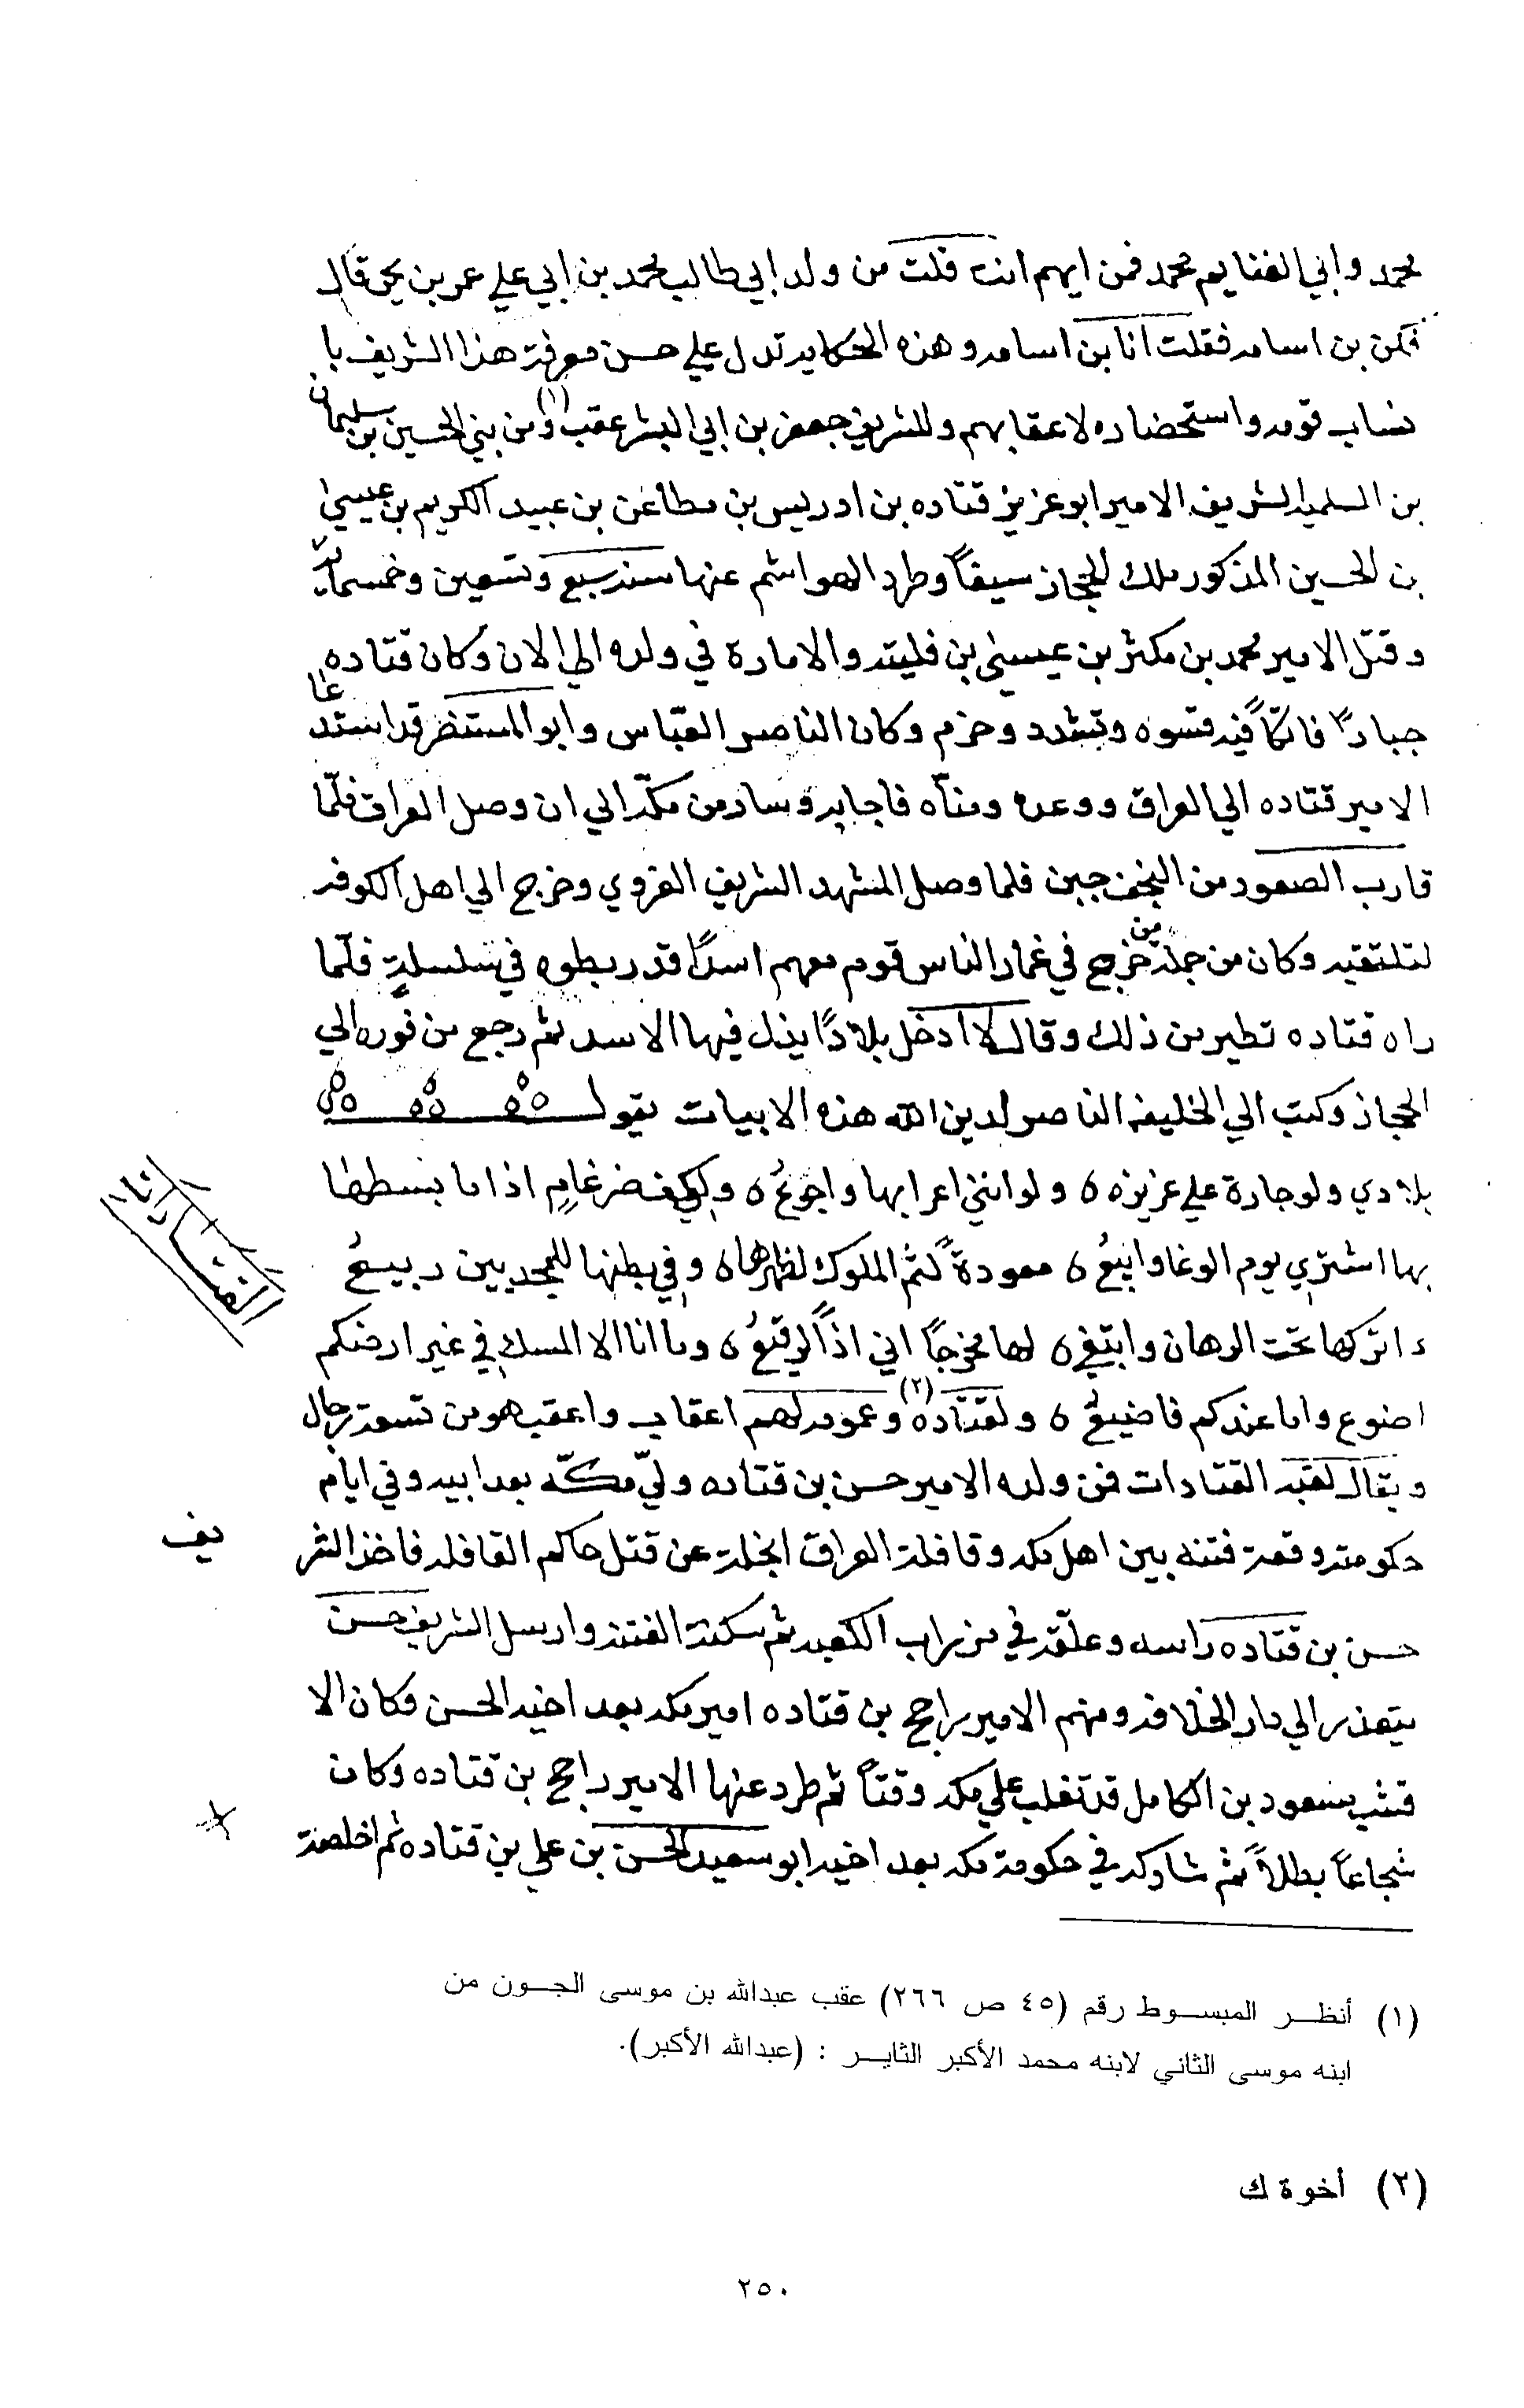 محمد وابي الغنايم محمد فمن ايهم انت قلت من ولد ابي طالب محمد بن ابي علي عمر بن يحي قال
فمن بن اسامه فقلت انا بن اسامه وهذه الحكايه تدل علي حسن معرفة هذا الشريف با
نساب قومه واستحضاره لاعقابهم وللشريف جعفر بن ابي البشر عقب (١) ومن بني الحسين بن سليمان
بن الشريف الامير ابو عزيز قتاده بن ادريس بن مطاعن بن عبيد الكريم بن عيسي
بن الحسين المذكور ملك الحجاز سيفاً وطرد الهواشم عنها سنة سبع وتسعين وخمسمائة
وقتل الامير محمد بن مكثر بن عيسي بن فليته والامارة في ولده الي الان وكان قتاده
جباراً فاتكاً فيه قسوه وتشدد وحزم وكان الناصر العباس وابو المستنصر قد استدعا
الامير قتاده الي العراق ووعده ومنّاه فاجابه وسار من مكه الي ان وصل العراق فلمّا
قارب الصعود من النجف جبن فلما وصل المشهد الشريف الغروي وخرج الي اهل الكوفه
لتلتقيه وكان من جملة من خرج في غمار الناس قوم معهم اسداً قد ربطوه في سلسلةٍ فلمّا
راه قتاده تطير من ذلك وقال لا ادخل بلاداً يذل فيها الاسد ثم رجع من فوره الي
الحجاز وكتب الي الخليفه الناصر لدين الله هذه الابيات يقول
بلادي ولو جارة علي عزيزه ٥ ولو انني اعرابها واجوعُ ٥ ولي كف ضرغامٍ اذا ما بسطها
بها اشتري يوم الوغا وابيعُ ٥ معودةً لثم الملوك لظهرها ٥ وفي بطنها للمجدبين ربيعُ
ءاتركها تحت الرهان وابتغي ٥ لها مخرجاً اني اذاً لرقيعُ ٥ وما انا الا المسك في غير ارضكم
اضوع واما عندكم فاضيعُ ٥ ولقتاده (٢) وعمومه لهم اعقاب واعقب هو من تسعة رجال
ويقال لعقبه القتادات فمن ولده الامير حسن بن قتاده وليّ مكّه بعد ابيه وفي ايام
حكومته وقعة فتنه بين اهل مكه وقافلة العراق انجلة عن قتل حاكم القافله فاخذ الشر يف
حسن بن قتاده راسه وعلّقه في ميزراب الكعبه ثم سكنة الفتنه وارسل الشريف حسن
يتعذر الي دار الخلافه ومنهم الامير راجح بن قتاده امير مكه بعد اخيه الحسن وكان الا
قشب مسعود بن الكامل قد تغلب علي مكه وقتاً ثم طرد عنها الامير راجح بن قتاده وكان
شجاعاً بطلاً ثم شاركه في حكومة مكه بعد اخيه ابو سعيد الحسن بن علي بن قتاده ثم اخلصة
القتادات
(١) أنظر المبسوط رقم (٤٥ ص ٢٦٦) عقب عبدالله بن موسى الجون من
ابنه موسى الثاني لابنه محمد الأكبر الثاير : (عبدالله الأكبر).
(٢) أخوة ك
٢٥٠